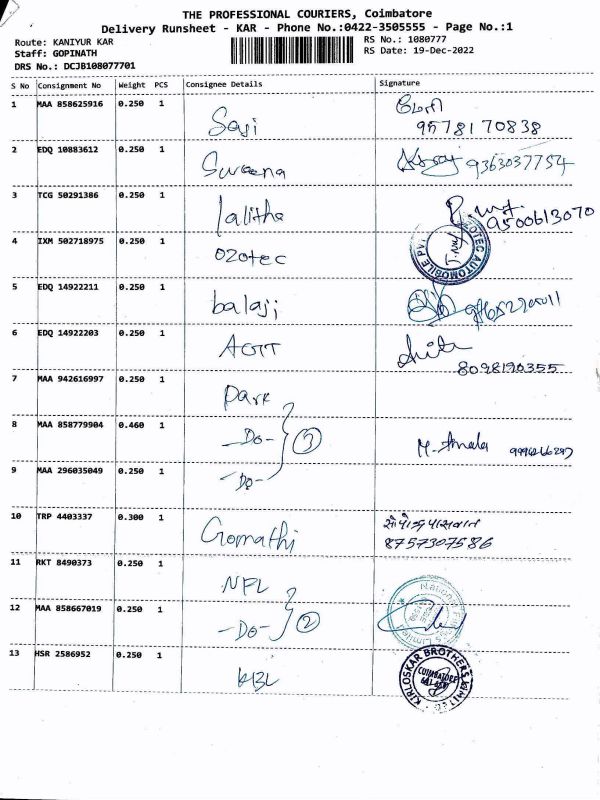 THE PROFESSIONAL COURIERS, Coimbatore
Delivery Runsheet - KAR - Phone No.:0422-3505555 - Page No.:1
Route: KANIYUR KAR
RS No.: 1080777
Staff: GOPINATH
RS Date: 19-Dec-2022
DRS No.: DCJB108077701
S No Consignment No Weight PCS Consignee Details Signature
1 MAA 858625916 0.250 1
9578170838
2 EDQ 10883612 0.250 1 Sweena
9363037754
3 TCG 50291386 0.250 1 lalitha
9500613070
4 IXM 502718975 0.250 1 ozotec
OTEC AUTOMOBILE PVT
5 EDQ 14922211 0.250 1 balaji
6 EDQ 14922203 0.250 1
8098190355
7 MAA 942616997 0.250 1 Park
8 MAA 858779904 0.460 1 -Do- 3 M. Amala
9 MAA 296035049 0.250 1 -Do-
10 TRP 4403337 0.300 1 Gomathi
8757307586
11 RKT 8490373 0.250 1 NPL
12 MAA 858667019 0.250 1 -Do- 2
13 HSR 2586952 0.250 1 KBL
KIRLOSKAR BROTHERS LIMITED
COIMBATORE